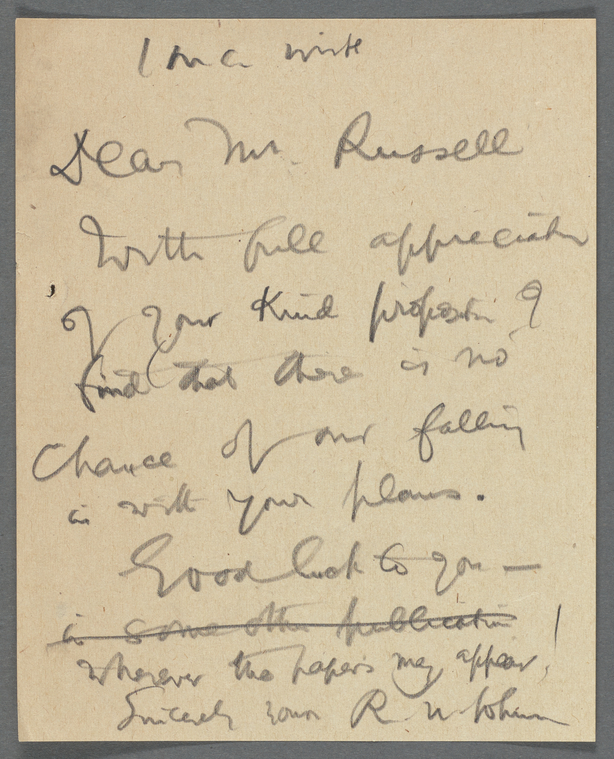 Dear Mr. Russell
With full appreciation
of your kind proposition I
find that there is no
chance of our falling
in with your plans.
Good luck to you —
in some other publication
wherever the papers may appear!
Sincerely yours R. U. Johnson